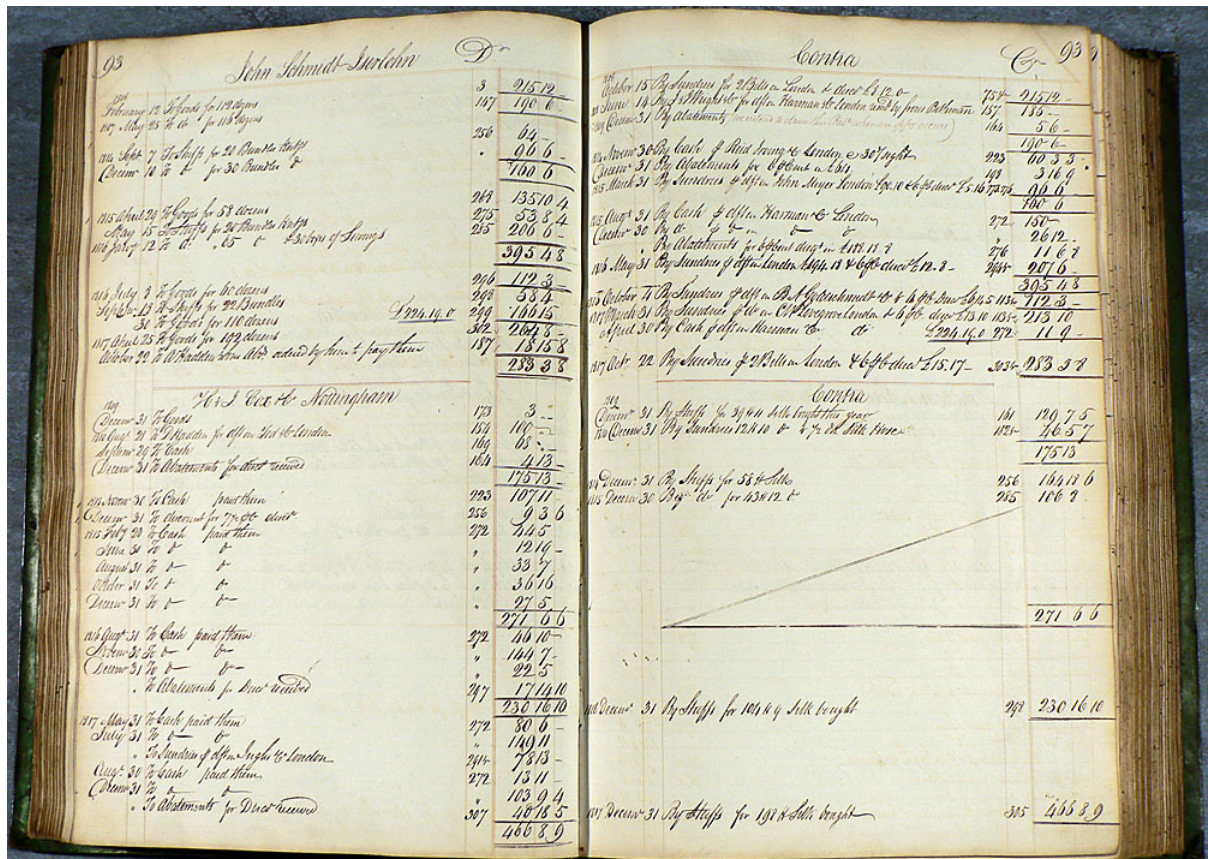 93
John Schmidt Iserlohn
Dr
1806
February 12 To Goods for 112 dozens 3 215 12 -
1807 May 25 To do for 115 dozens 147 190 6
1814 Septr 7 To Stuffs for 20 Bundles 256 64 -
Decemr 10 To do for 30 Bundles do 96 6 -
160 6
1815 April 29 To Goods for 58 dozens 268 135 10 4
May 15 To Stuffs for 20 Bundles 275 53 8 4
1816 Feby 12 To do 65 do 285 206 6 -
395 4 8
1816 July 3 To Goods for 60 dozens 296 112 3
Septemr 13 To Stuffs for 22 Bundles 298 58 4
30 To Goods for 110 dozens £224.19.0 299 166 15
1817 April 25 To Goods for 192 dozens 302 264 8 -
October 22 To A Hadden ordered by him to pay them 187 18 15 8
283 3 8
H & J Cox & Co Nottingham
1809
Decemr 31 To Goods 173 3 - -
1810 Augt 21 To D Hadden for dft on London 154 100 -
Septemr 29 To Cash 169 68 -
Decemr 31 To Abatements for disct received 164 4 13 -
175 13 -
1814 Novemr 30 To Cash paid them 223 107 11
Decemr 31 To discount for 256 9 3 6
1815 Feby 20 To Cash paid them 272 44 5
June 31 To do do " 12 19 -
August 31 To do do " 33 7
October 31 To do do " 36 16
Decemr 31 To do do " 27 5
271 6 6
1816 Augt 31 To Cash paid them 272 46 10 -
Novemr 30 To do do " 144 7 -
Decemr 31 To do do " 22 5
" To Abatements for Disct received 297 17 14 10
230 16 10
1817 May 31 To Cash paid them 272 80 6 -
July 31 To do do " 149 11
" To Sundries dft on Inglis & Co London 78 13 -
Augt 30 To Cash paid them 272 13 11
Decemr 31 To do do " 103 9 4
" To Abatements for Disct received 307 40 18 5
466 8 9
Contra
Cr
93
October 15 By Sundries for 2 Bills on London & discr £8 12 0 215 12 -
June 14 By Wright & Co for dft on Harman & Co London 157 185 -
Decemr 31 By Abatements 164 5 6 -
190 6
1814 Novemr 30 By Cash London 223 60 3 3
Decemr 31 By Abatements for 6 £64 198 3 16 9
1815 March 31 By Sundries dft on John Meyer London 96 6
160 6
1815 Augt 31 By Cash dft on Harman & Co London 272 150 -
Decemr 30 By do do on do do " 26 12 -
" By Abatements £188.18.8 276 11 6 8
1816 May 31 By Sundries dft on London £194.18 & 6 £12.8 - 207 6 -
395 4 8
October By Sundries dft on B A Goldschmidt & Co 112 3 -
1817 March 31 By Sundries London 213 10
April 30 By Cash dft on Harman & Co do £224.19.0 272 11 9 -
1817 Octr 22 By Sundries 2 Bills on London £15.17 - 283 3 8
Contra
1809
Decemr 31 By Stuffs for Silk bought this year 161 129 7 5
1810 Decemr 31 By Sundries Silk Hose 46 5 7
175 13
1814 Decemr 31 By Stuffs for 58 Silk 256 164 18 6
1815 Decemr 30 By do for 43 12 do 285 106 8 -
271 6 6
1816 Decemr 31 By Stuffs for 104 9 Silk bought 298 230 16 10
1817 Decemr 31 By Stuffs for 198 Silk bought 305 466 8 9